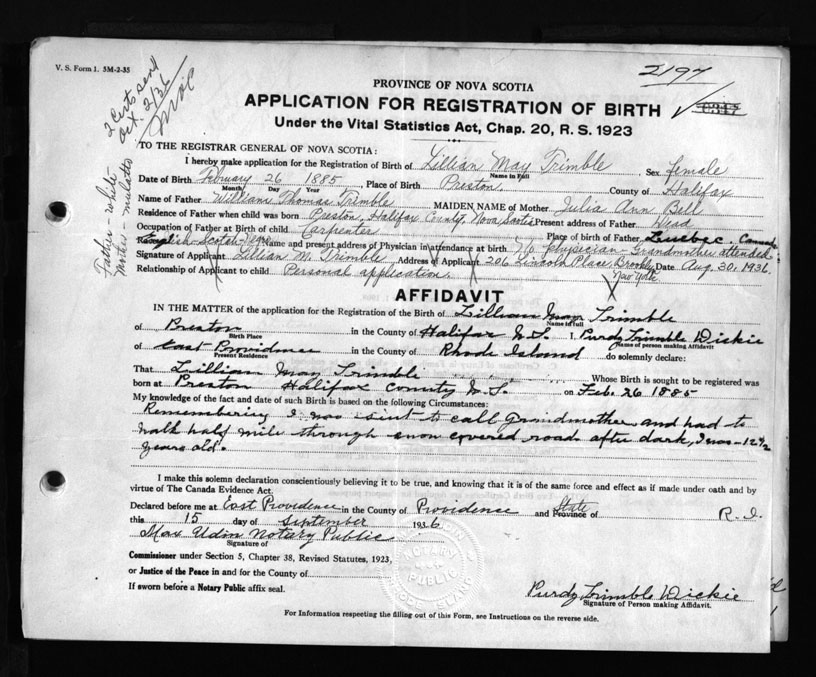 V. S. Form 1. 5M-2-35
2197
2 Certs sent
Oct. 2/36
PROVINCE OF NOVA SCOTIA
APPLICATION FOR REGISTRATION OF BIRTH
C347
Under the Vital Statistics Act, Chap. 20, R. S. 1923
TO THE REGISTRAR GENERAL OF NOVA SCOTIA:
I hereby make application for the Registration of Birth of Lillian May Trimble, Sex female
Name in Full
Date of Birth February 26 1885, Place of Birth Preston, County of Halifax
Month Day Year
Name of Father William Thomas Trimble MAIDEN NAME of Mother Julia Ann Bell
Residence of Father when child was born Preston, Halifax County, Nova Scotia Present address of Father Dead
Occupation of Father at Birth of child Carpenter Place of Birth of Father Quebec, Canada
English Scotch Name and present address of Physician in attendance at birth No Physician - Grandmother attended
Signature of Applicant Lillian M. Trimble Address of Applicant 206 Lincoln Place, Brooklyn Date Aug. 30, 1936
New York
Relationship of Applicant to child Personal application.
Father - white
Mother - mulatto
AFFIDAVIT
IN THE MATTER of the application for the Registration of the Birth of Lillian May Trimble
Name in full
of Preston in the County of Halifax N.S. I, Purdy Trimble Dickie
Birth Place Name of person making Affidavit
of East Providence in the County of Rhode Island do solemnly declare:
Present Residence
That Lillian May Trimble Whose Birth is sought to be registered was
born at Preston Halifax County N.S. on Feb. 26 1885
My knowledge of the fact and date of such Birth is based on the following Circumstances:
Remembering I was sent to call Grandmother and had to
walk half mile through snow covered roads after dark, I was 12 1/2
years old.
I make this solemn declaration conscientiously believing it to be true, and knowing that it is of the same force and effect as if made under oath and by
virtue of The Canada Evidence Act.
Declared before me at East Providence in the County of Providence and State Province of R. I.
this 15 day of September 1936
Max Udin Notary Public
Signature of
Commissioner under Section 5, Chapter 38, Revised Statutes, 1923,
or Justice of the Peace in and for the County of
If sworn before a Notary Public affix seal.
NOTARY
PUBLIC
RHODE ISLAND
Purdy Trimble Dickie
Signature of Person making Affidavit.
For Information respecting the filling out of this Form, see Instructions on the reverse side.